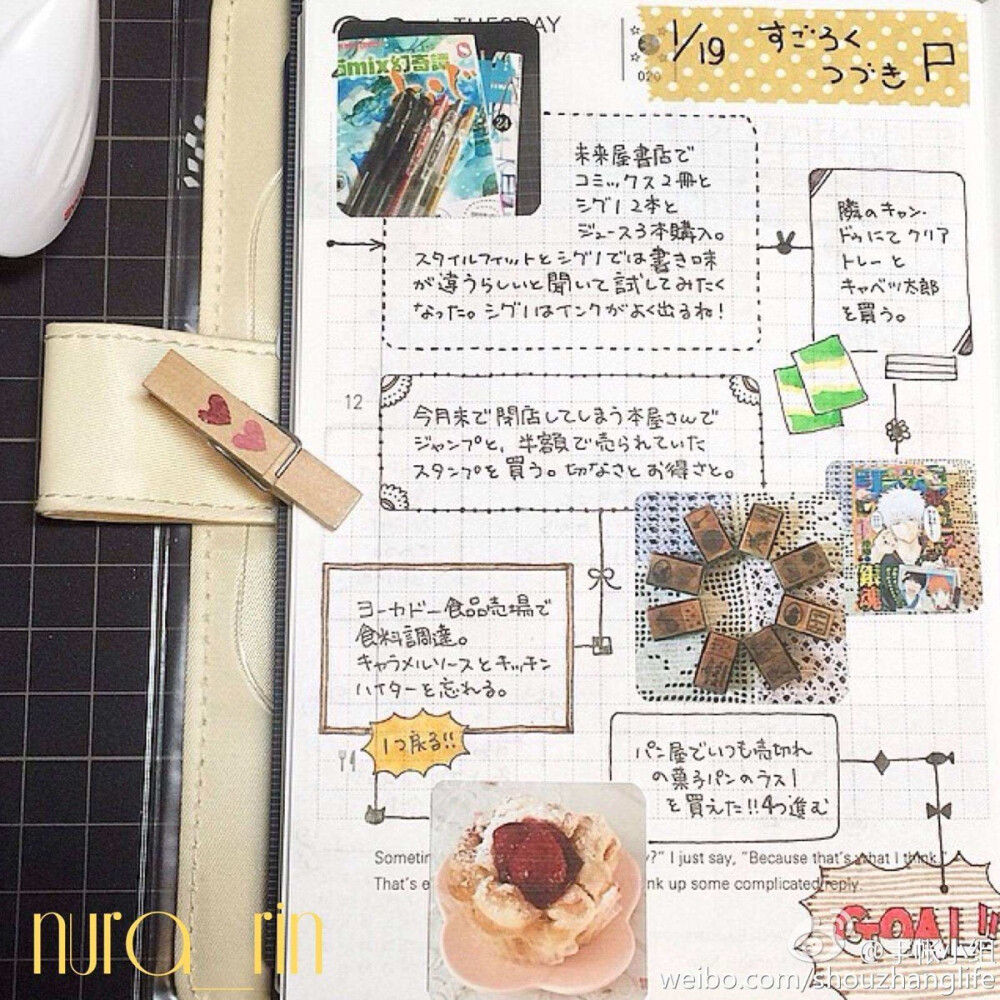 TUESDAY
1/19 すごろく
つづき
020
mix幻奇譚
24
未来屋書店で
コミックス2冊と
シグノ2本と
ジュース3本購入。
スタイルフィットとシグノでは書き味
が違うらしいと聞いて試してみたく
なった。シグノはインクがよく出るね!
隣のキャン・
ドゥにてクリア
トレーと
キャベツ太郎
を買う。
12
今月末で閉店してしまう本屋さんで
ジャンプと、半額で売られていた
スタンプを買う。切なさとお得さと。
銀魂
ヨーカドー食品売場で
食料調達。
キャラメルソースとキッチン
ハイターを忘れる。
1つ戻る!!
パン屋でいつも売切れ
の菓子パンのラス1
を買えた!!4つ進む
Sometim
y?" I just say, "Because that's what I think."
That's e
nk up some complicated reply.
GOAL!!
nura_rin
@手帐小组
weibo.com/shouzhanglife